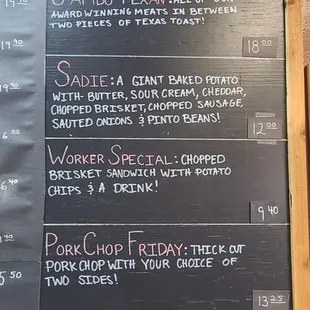 TEXAN: ALL OF OUR
AWARD WINNING MEATS IN BETWEEN
TWO PIECES OF TEXAS TOAST!
18 00
SADIE: A GIANT BAKED POTATO
WITH BUTTER, SOUR CREAM, CHEDDAR,
CHOPPED BRISKET, CHOPPED SAUSAGE,
SAUTED ONIONS & PINTO BEANS!
12 00
WORKER SPECIAL: CHOPPED
BRISKET SANDWICH WITH POTATO
CHIPS & A DRINK!
9 40
PORK CHOP FRIDAY: THICK CUT
PORK CHOP WITH YOUR CHOICE OF
TWO SIDES!
13 25